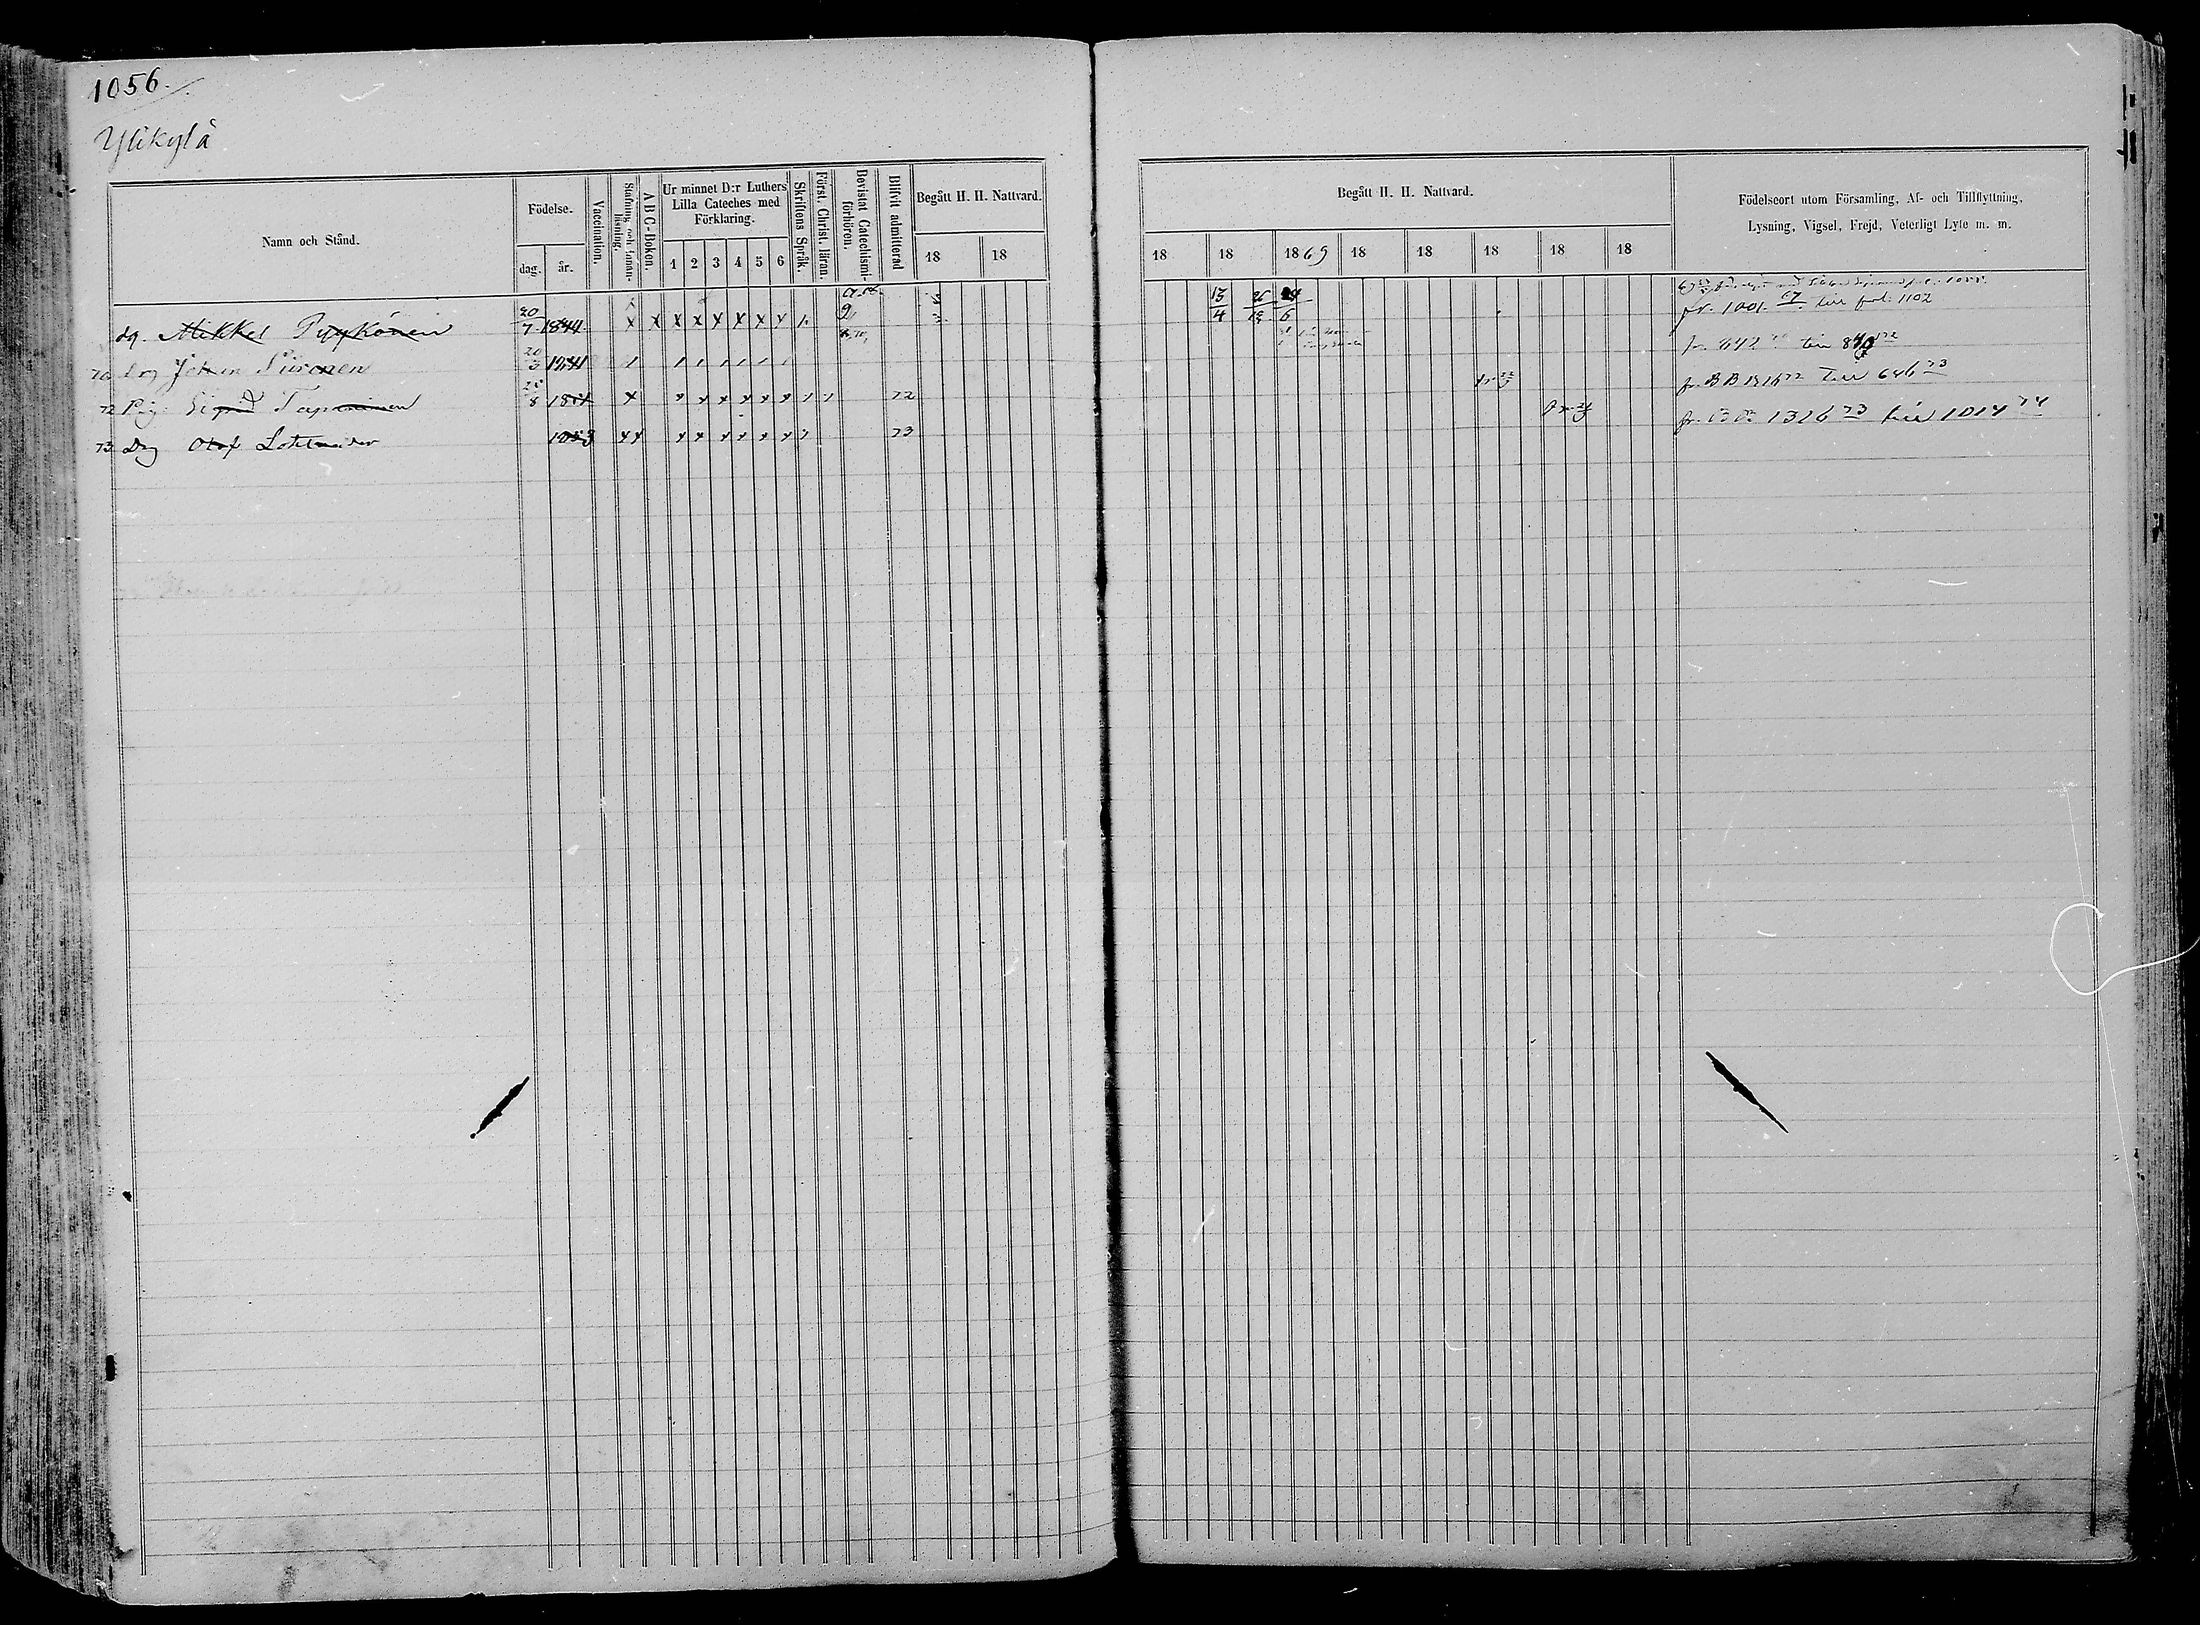 1056.
Ylikylä
Namn och Stånd.
Födelse.
dag.
år.
Vaccination.
Stafning och Innanläsning.
A B C-Boken.
Ur minnet D:r Luthers
Lilla Cateches med
Förklaring.
1 2 3 4 5 6
Skriftens Språk.
Först. Christ. läran.
Bevistat Catechismi-
förhören.
Blifvit admitterad
Begått H. H. Nattvard.
18 18
Begått H. H. Nattvard.
18 18 1869 18 18 18 18 18
Födelseort utom Församling, Af- och Tillflyttning,
Lysning, Vigsel, Frejd, Veterligt Lyte m. m.
dg. Mikkel Pyykönen 20/7 1844 x x x x x x x x 1. 13/4 26/19 24/6 fr. 1001 67 till fol. 1102
70 drg Johan Siironen 20/3 1841 1 1 1 1 1 1 1 fr. 842 till 840 72
72 Pig. Sigrid Tapaninen 25/8 x x x x x x x 1 1 72 fr. B B 1316 72 till 646 73
73 Drg Olof Lohilander 1853 x x x x x x x x 1 73 fr. 1316 73 till 1014 74